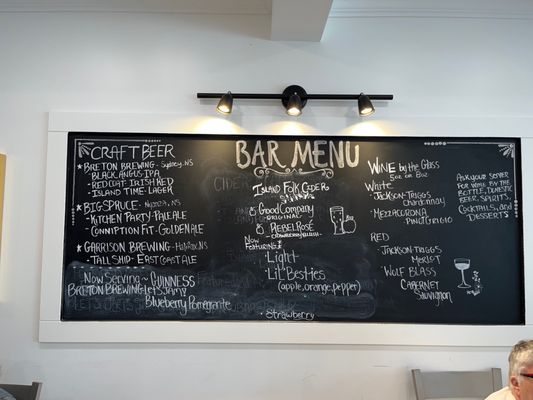 BAR MENU
CRAFT BEER
★ BRETON BREWING - Sydney, NS
- BLACK ANGUS IPA
- RED COAT IRISH RED
- ISLAND TIME LAGER
★ BIG SPRUCE - Nyanza, NS
- KITCHEN PARTY - PALE ALE
- CONNIPTION FIT - GOLDEN ALE
★ GARRISON BREWING - Halifax, NS
- TALL SHIP - EAST COAST ALE
Now Serving ~ GUINNESS
BRETON BREWING LET'S JAM!
Blueberry Pomegranate
CIDER
ISLAND FOLK CIDERS
SYDNEY, NS
- Good Company
ORIGINAL
- REBEL ROSÉ
Now Featuring:
- Light
- Lil' Besties
(apple, orange, pepper)
- Strawberry
WINE by the GLASS
5oz or 8oz
White
- JACKSON-TRIGGS
Chardonnay
- MEZZACORONA
PINOT GRIGIO
RED
- JACKSON-TRIGGS
MERLOT
- WOLF BLASS
CABERNET
Sauvignon
ASK YOUR SERVER
FOR WINE BY THE
BOTTLE, DOMESTIC
BEER, SPIRITS,
COCKTAILS, AND
DESSERTS